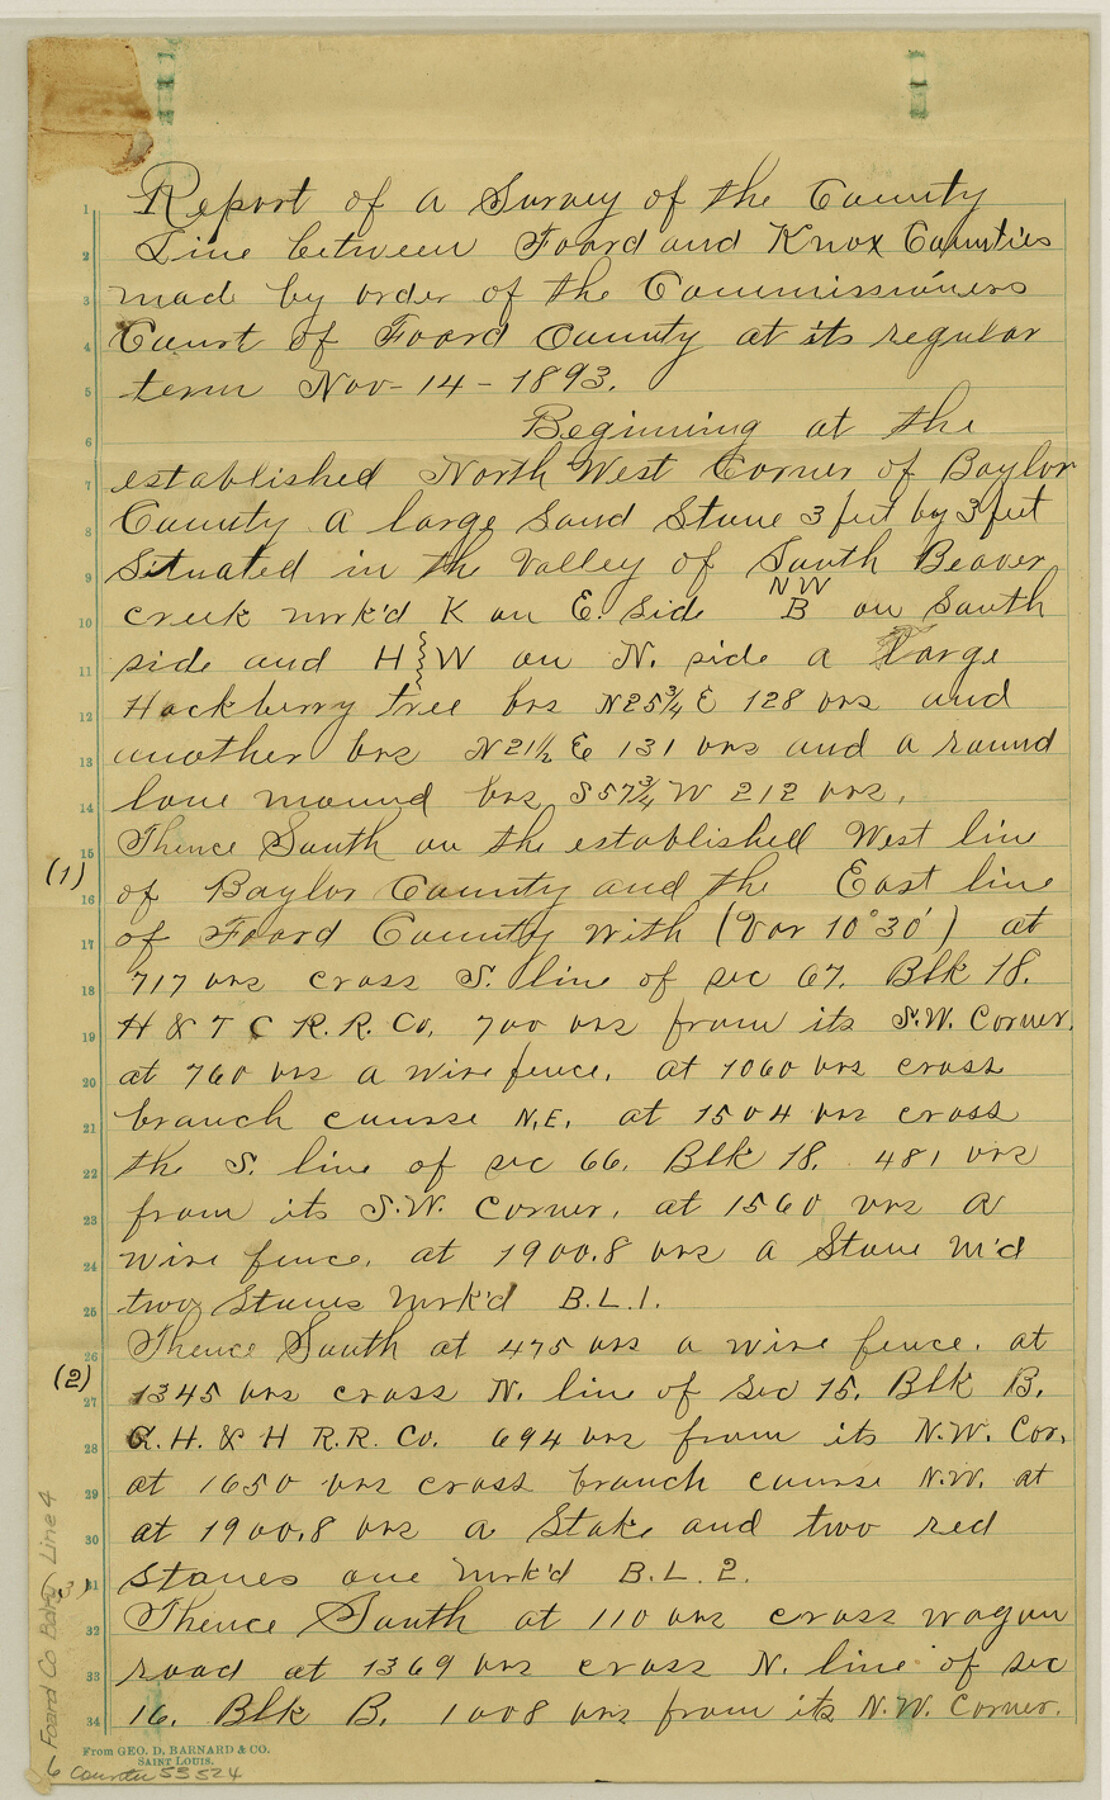 Report of a Survey of the County
1
Line between Foard and Knox Counties
2
made by order of the Commissioners
3
Court of Foard County at its regular
4
term Nov - 14 - 1893.
5
Beginning at the
6
established North West Corner of Baylor
7
County a large Sand Stone 3 feet by 3 feet
8
Situated in the Valley of South Beaver
9
NW
creek mrk'd K on E. Side B on South
10
side and H}W on N. side a large
11
Hackberry tree brs N25¾ E 128 vrs and
12
another brs N21½ E 131 vrs and a round
13
lone mound brs S57¾ W 212 vrs.
14
Thence South on the established West line
15
(1)
of Baylor County and the East line
16
of Foard County with (Var 10° 30') at
17
717 vrs cross S. line of sec 67. Blk 18.
18
H & T C R.R. Co. 700 vrs from its S.W. Corner.
19
at 760 vrs a wire fence. at 1060 vrs cross
20
branch course N.E. at 1504 vrs cross
21
the S. line of sec 66. Blk 18. 481 vrs
22
from its S.W. Corner. at 1560 vrs a
23
wire fence. at 1900.8 vrs a Stone M'd
24
two Stones Mrk'd B.L.1.
25
Thence South at 475 vrs a wire fence. at
26
(2)
1345 vrs cross N. line of Sec 15. Blk B.
27
G. H. & H R.R. Co. 694 vrs from its N.W. Cor.
28
at 1650 vrs cross branch course N.W. at
29
at 1900.8 vrs a Stake and two red
30
Stones one Mrk'd B.L.2.
31
3)
Thence South at 110 vrs cross wagon
32
road at 1369 vrs cross N. line of sec
33
16. Blk B. 1008 vrs from its N.W. Corner.
34
From GEO. D. BARNARD & CO.
SAINT LOUIS.
6 Counter 53524
Foard Co Bdry Line 4